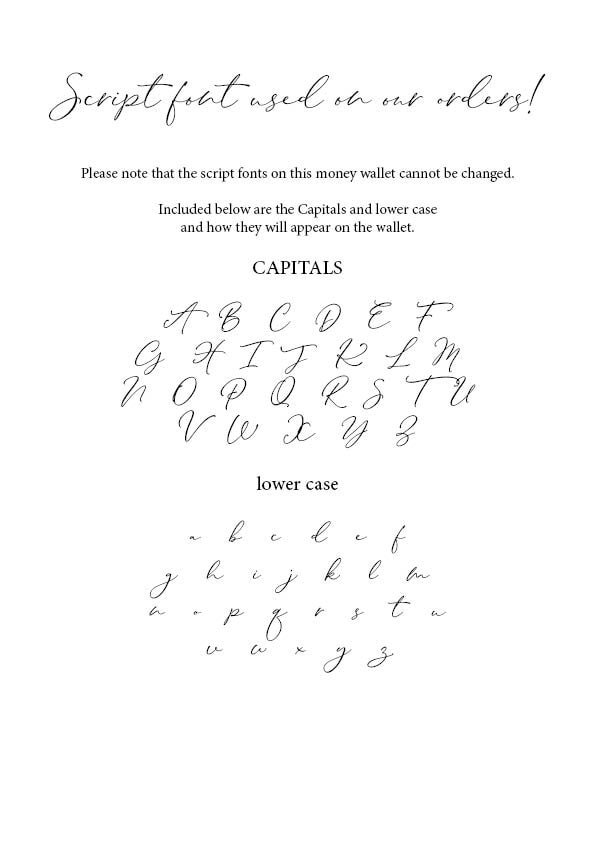 Script font used on our orders!
Please note that the script fonts on this money wallet cannot be changed.
Included below are the Capitals and lower case
and how they will appear on the wallet.
CAPITALS
A B C D E F
G H I J K L M
N O P Q R S T U
V W X Y Z
lower case
a b c d e f
g h i j k l m
n o p q r s t u
v w x y z